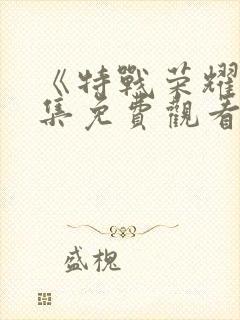 《特戰荣耀
集免費觀看
盛槐